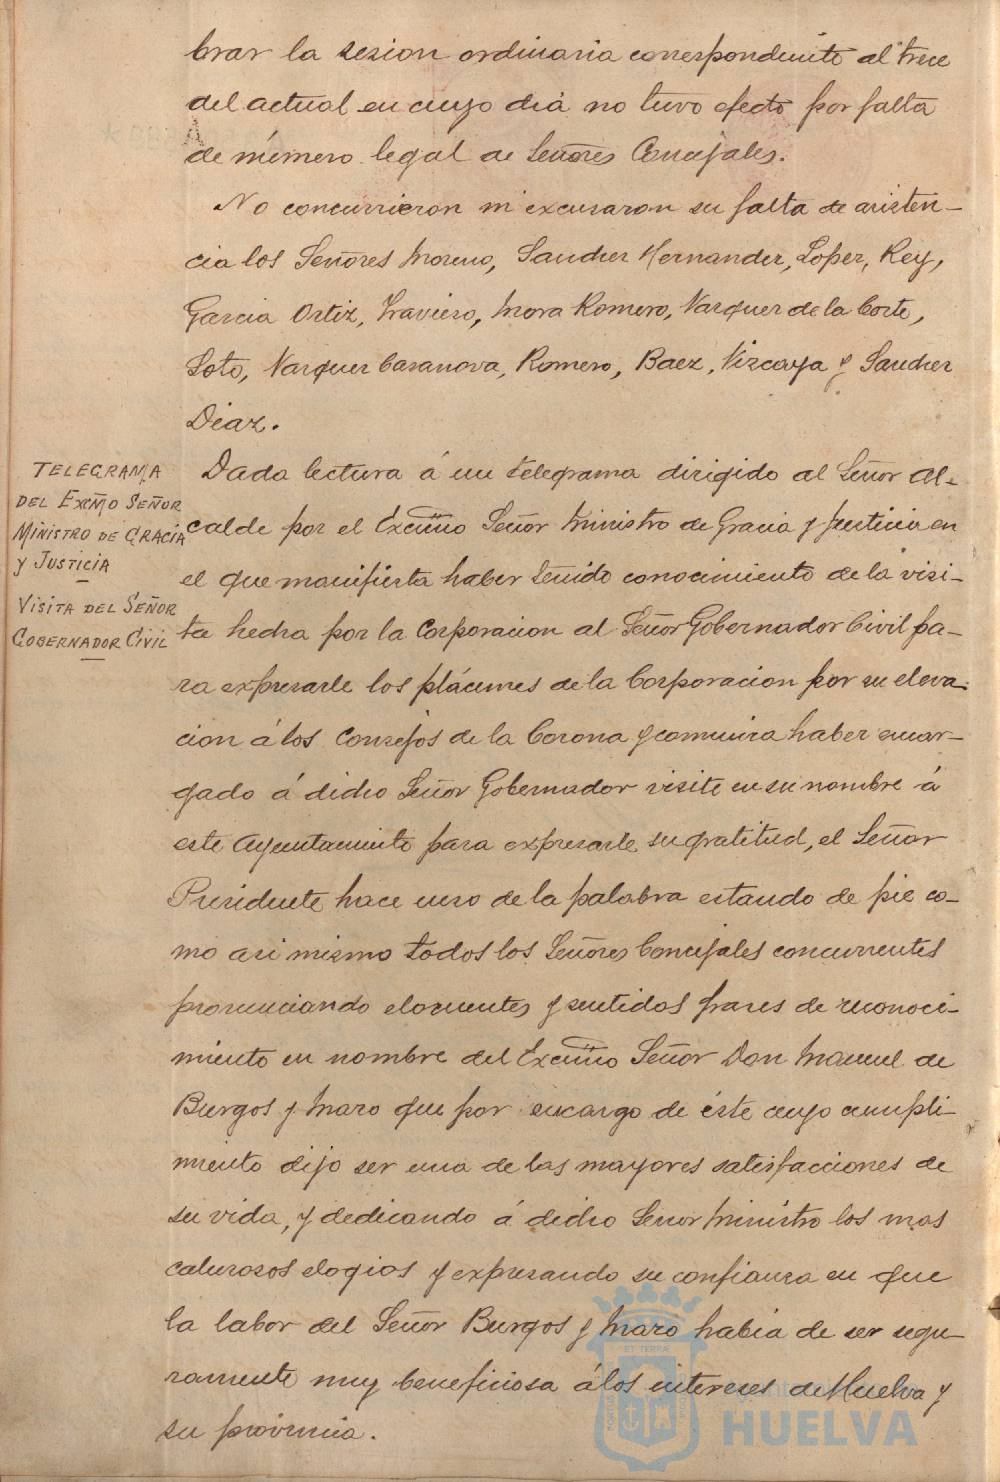 brar la sesion ordinaria correspondiente al trece
del actual en cuyo dia no tuvo efecto por falta
de número legal de Señores Concejales.
No concurrieron ni excusaron su falta de asisten-
cia los Señores Moreno, Sanchez Hernandez, Lopez, Rey,
Garcia Ortiz, Travieso, Mora Romero, Vazquez de la Corte,
Soto, Vazquez Casanova, Romero, Baez, Vizcaya y Sanchez
Diaz.
TELEGRAMA
DEL EXCMO SEÑOR
MINISTRO DE GRACIA
Y JUSTICIA
VISITA DEL SEÑOR
GOBERNADOR CIVIL
Dada lectura á un telegrama dirigido al Señor Al-
calde por el Excmo Señor Ministro de Gracia y Justicia en
el que manifiesta haber tenido conocimiento de la visi-
ta hecha por la Corporacion al Señor Gobernador Civil pa-
ra expresarle los plácemes de la Corporacion por su eleva-
cion á los Consejos de la Corona y comunica haber encar-
gado á dicho Señor Gobernador visite en su nombre á
este Ayuntamiento para expresarle su gratitud, el Señor
Presidente hace uso de la palabra estando de pie co-
mo asi mismo todos los Señores Concejales concurrentes
pronunciando elocuentes y sentidas frases de reconoci-
miento en nombre del Excmo Señor Don Manuel de
Burgos y Mazo que por encargo de éste cuyo cumpli-
miento dijo ser una de las mayores satisfacciones de
su vida, y dedicando á dicho Señor Ministro los mas
calurosos elogios y expresando su confianza en que
la labor del Señor Burgos y Mazo habia de ser segu-
ramente muy beneficiosa á los intereses de Huelva y
su provincia.
HUELVA